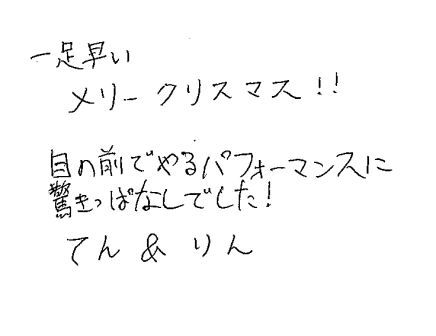 一足早い
メリークリスマス!!
目の前でやるパフォーマンスに
驚きっぱなしでした!
てん & りん